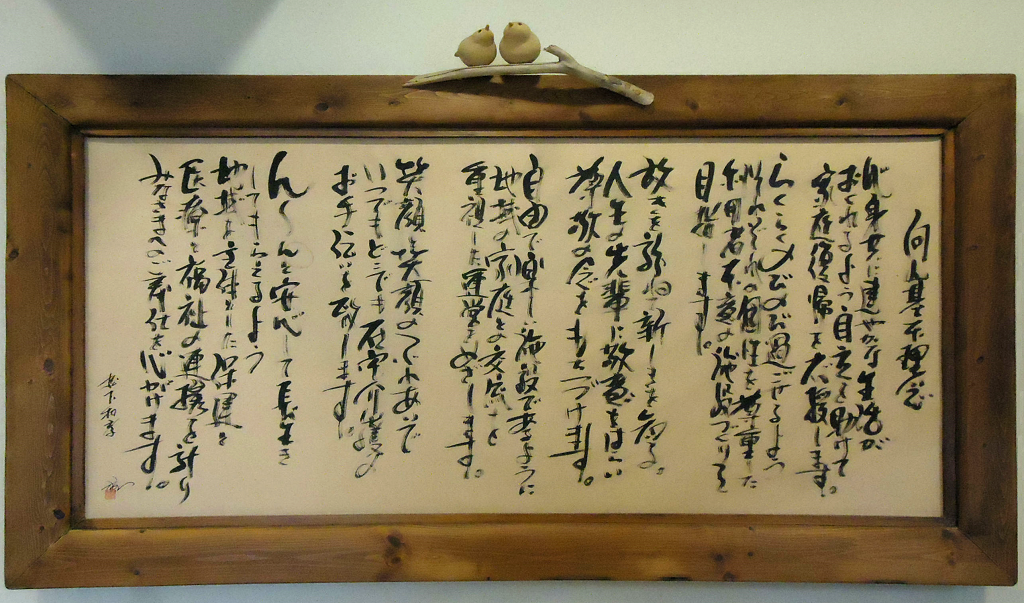 基本理念
心身共に健やかな生活が
おくれるよう自立を助けて
家庭復帰を支援します。
らくらくのびのび過ごせるよう
それぞれの個性を尊重した
利用者本意の施設づくりを
目指します。
故きを訪ね新しきを知る。
人生の先輩に敬意をはらい
尊敬の念をもちつづけます。
自由で楽しい施設であるように
地域や家庭との交流を
重視した運営をめざします。
笑顔と笑顔のふれあいで
いつでもどこでも在宅介護の
お手伝いを致します。
ん〜んと安心して長生き
してもらえるよう
地域を主体とした保健と
医療と福祉の連携を計り
みなさまへのご奉仕を心がけます。